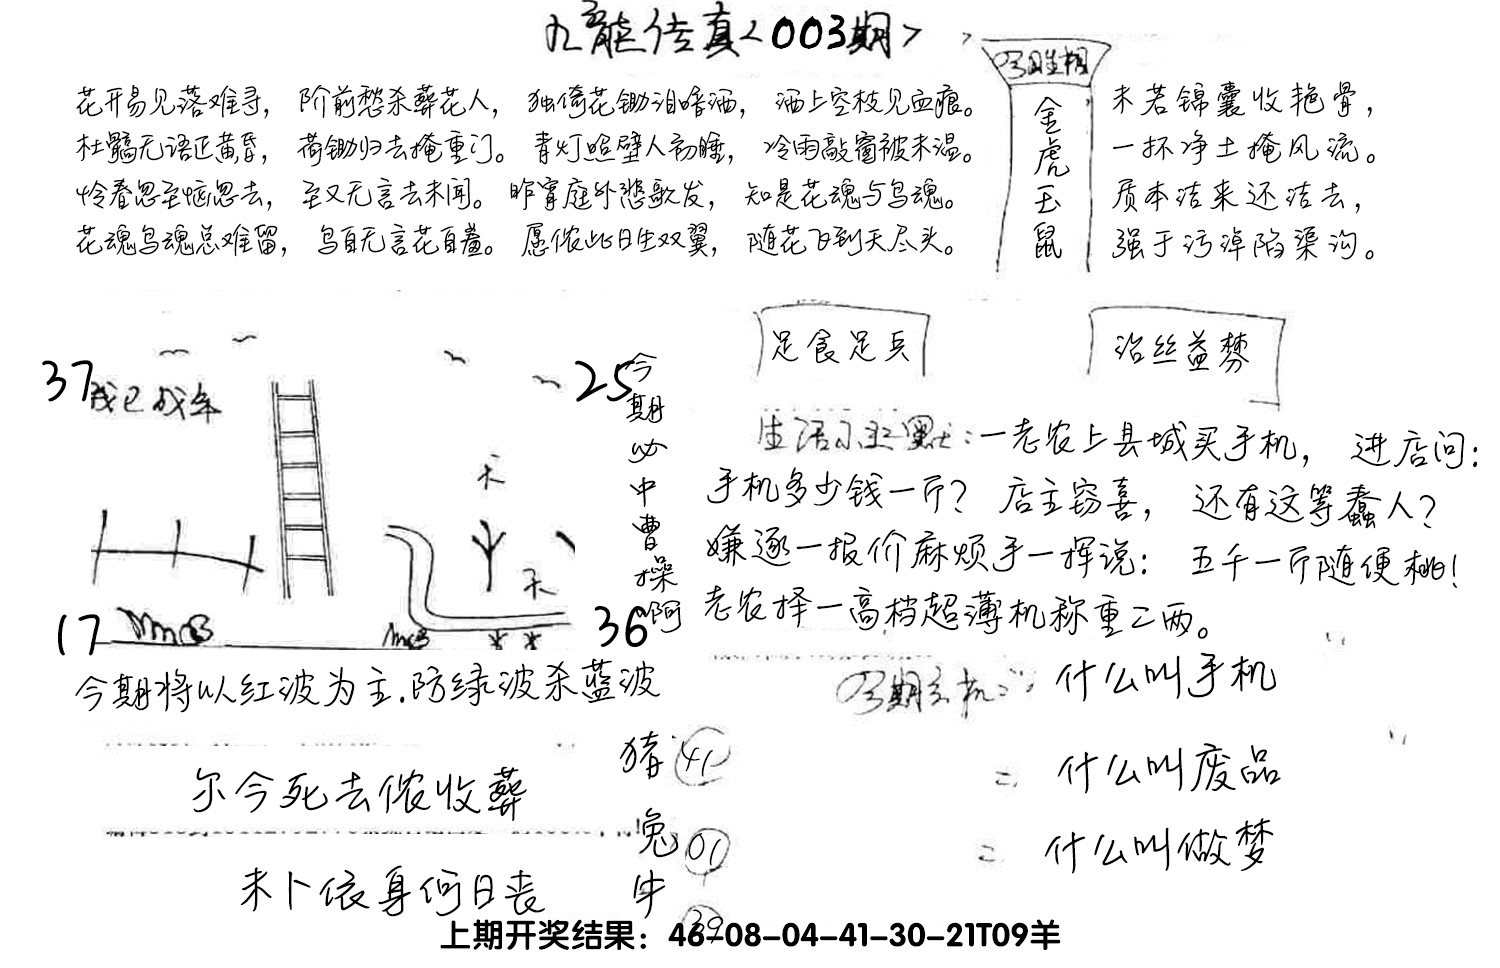 九龙传真<003期>
03期生相
金虎玉鼠
花开易见落难寻，阶前愁杀葬花人，独倚花锄泪暗洒，洒上空枝见血痕。
杜鹃无语正黄昏，荷锄归去掩重门。青灯照壁人初睡，冷雨敲窗被未温。
怜春忽至恼忽去，至又无言去未闻。昨宵庭外悲歌发，知是花魂与鸟魂。
花魂鸟魂总难留，鸟自无言花自羞。愿侬此日生双翼，随花飞到天尽头。
未若锦囊收艳骨，
一抔净土掩风流。
质本洁来还洁去，
强于污淖陷渠沟。
37
25
17
36
天
天
今期必中曹操啊
今期将以红波为主.防绿波杀蓝波
足食足兵
治丝益棼
生活小幽默:一老农上县城买手机，进店问:
手机多少钱一斤？店主窃喜，还有这等蠢人？
嫌逐一报价麻烦手一挥说：五千一斤随便桃！
老农择一高档超薄机称重二两。
03期玄机:什么叫手机
= 什么叫废品
= 什么叫做梦
尔今死去侬收葬
未卜侬身何日丧
猪 41
兔 01
牛 39
上期开奖结果：46-08-04-41-30-21T09羊